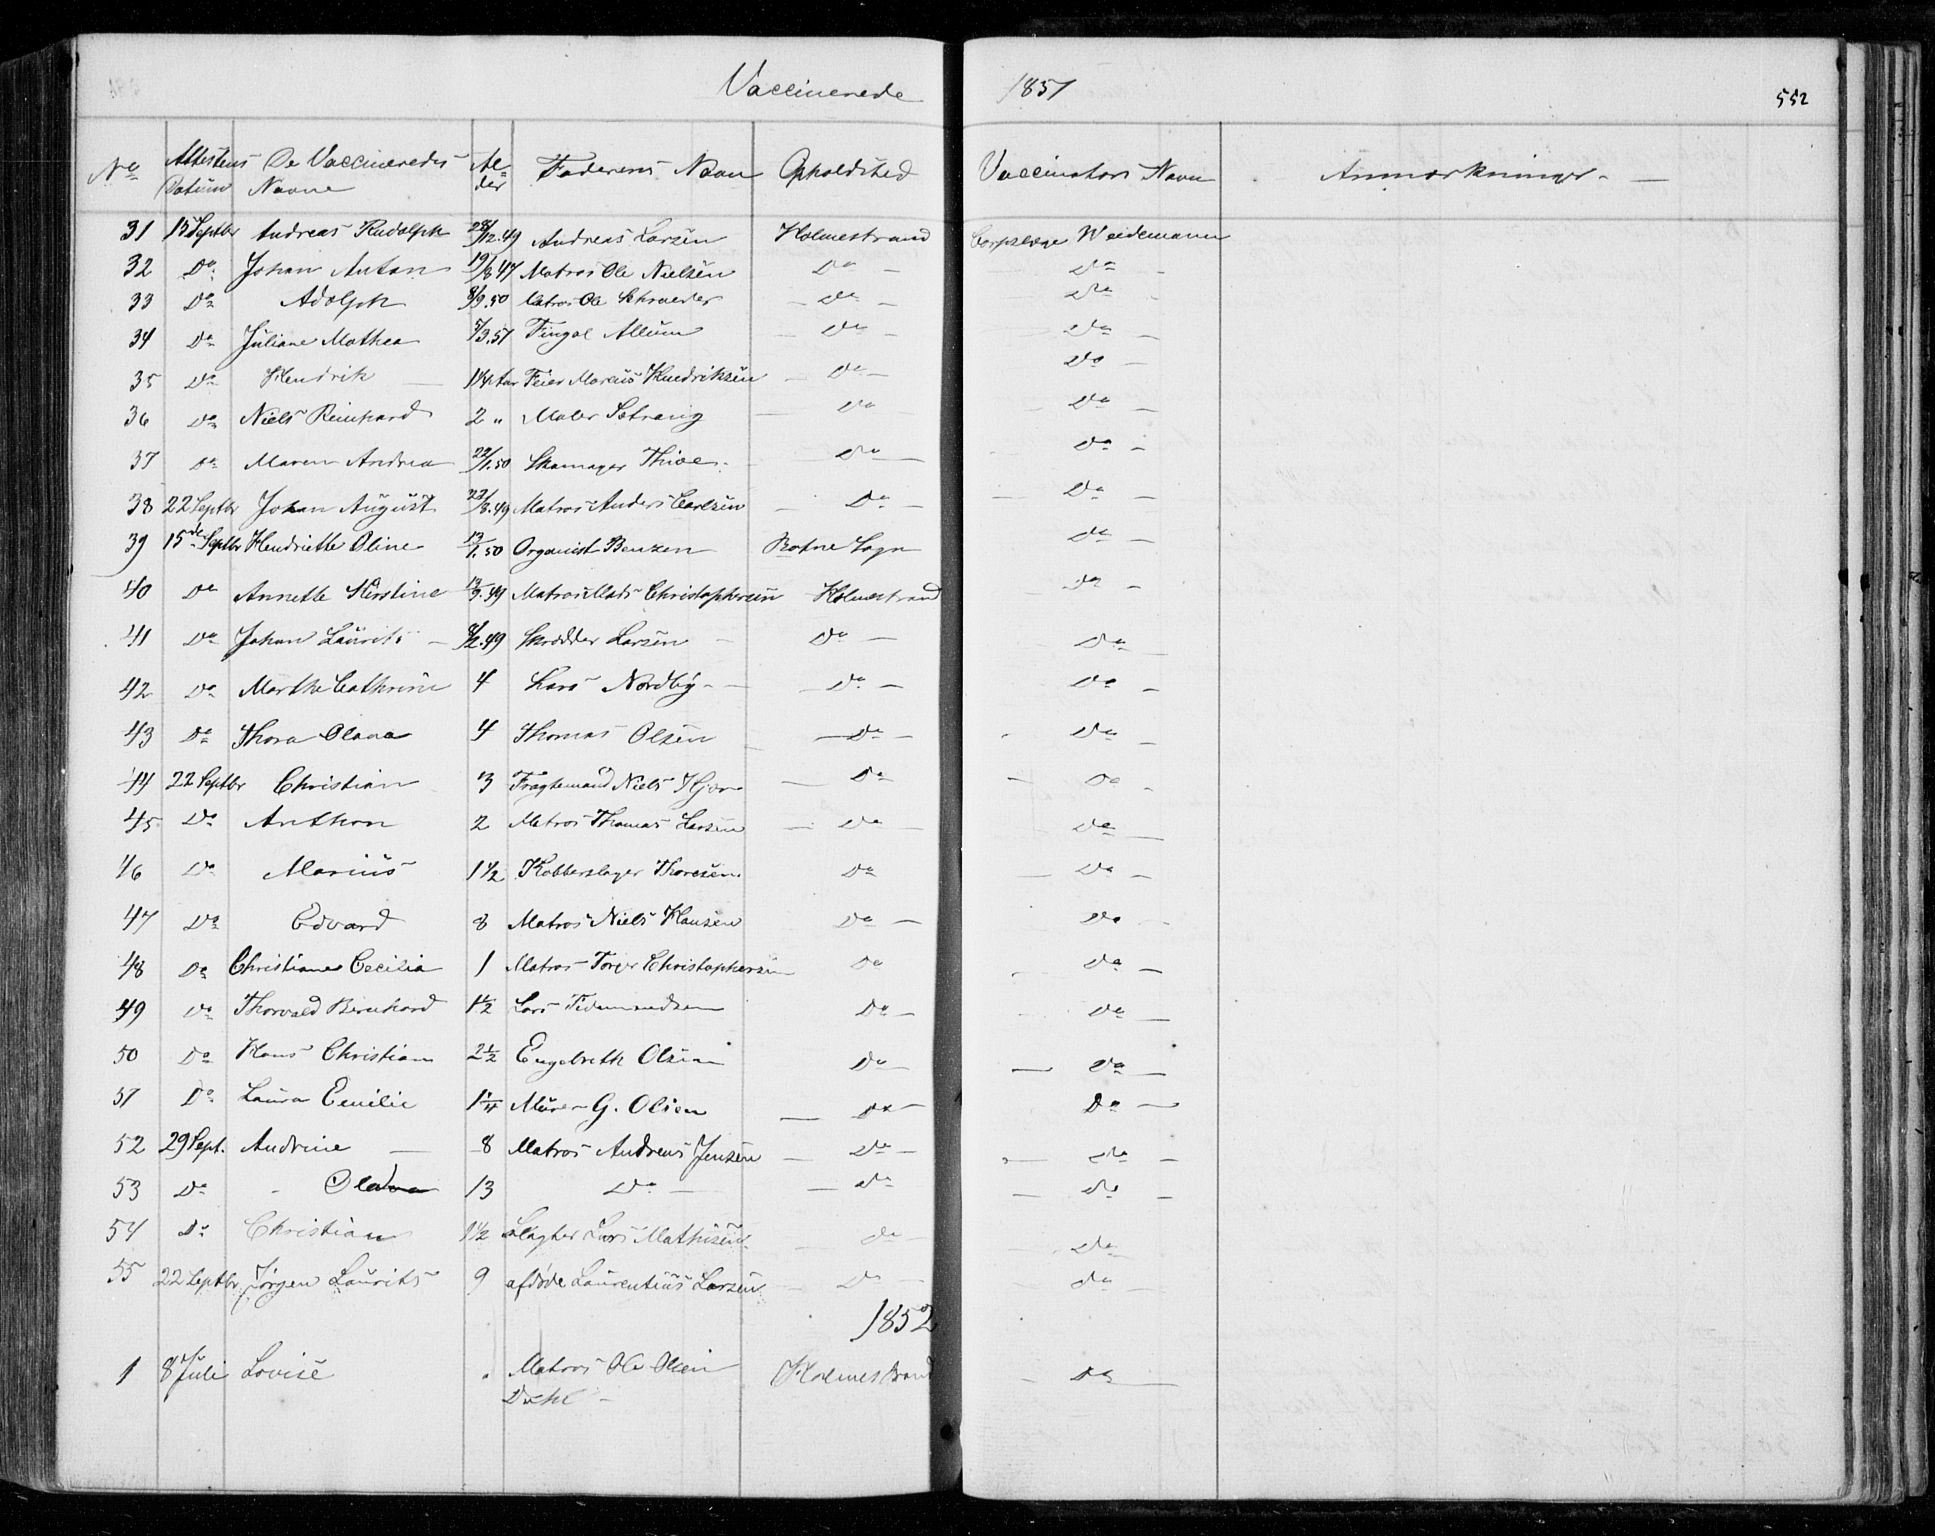 Vaccinerede 1851
552
No Attestens Datum De Vaccineredes Navne Alder Faderens Navn Opholdsted Vaccinators Navn Anmærkninger
31 15 Septbr Andreas Rudolph 28/12.49 Andreas Larsen Holmestrand Corpslæge Weidemann
32 Do Johan Anton 19/8 47 Matros Ole Nielsen Do Do
33 Do Adolph 8/9.50 Matros Ole Schrøder Do Do
34 Do Juliane Mathea 5/3.51 Fingal Allum Do Do
35 Do Hendrik 1 1/4 Aar Feier Marcus Hendriksen Do Do
36 Do Niels Reinhard 2 " Maler Do Do
37 Do Maren Andrea 22/1.50 Skomager Do Do
38 22 Septbr Johan August 22/3.49 Matros Anders Carlsen Do Do
39 15de Septbr Hendriette Oline 13/1.50 Organist Benzen Botne Sogn Do
40 Do Annette Kirstine 13/9.49 Matros Mads Christophersen Holmestrand Do
41 Do Johan Laurits 8/2.49 Skrædder Larsen Do Do
42 Do Marthe Cathrine 4 Lars Nordby Do Do
43 Do Thora Olava 4 Thomas Olsen Do Do
44 22 Septbr Christian 3 Fragtemand Niels Do Do
45 Do Anthon 2 Matros Thomas Larsen Do Do
46 Do Marius 1 1/2 Kobberslager Thoresen Do Do
47 Do Edvard 8 Matros Niels Hansen Do Do
48 Do Christiane Cecilia 1 Matros Torger Christophersen Do Do
49 Do Thorvald Bernhard 1 1/2 Lars Do Do
50 Do Hans Christian 2 1/2 Engebreth Olsen Do Do
51 Do Laura Emilie 1 1/4 Murer G. Olsen Do Do
52 29 Sept. Andrine 8 Matros Andreas Jensen Do Do
53 Do 13 Do Do Do
54 Do Christian 1 1/2 Slagter Lars Mathisen Do Do
55 22 Septbr Jørgen Laurits 9 afdøde Laurentius Larsen Do Do
1852
1 8 Juli Lovise " Matros Ole Olsen Holmestrand Do
Dahl